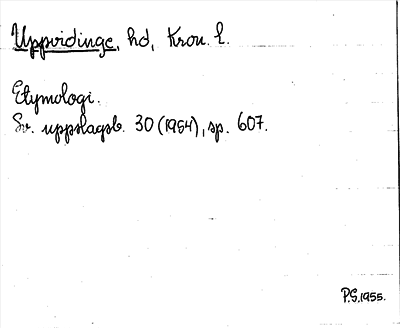 Uppvidinge, hd, Kron. l.
Etymologi.
Sv. uppslagsb. 30 (1954), sp. 607.
P.G. 1955.